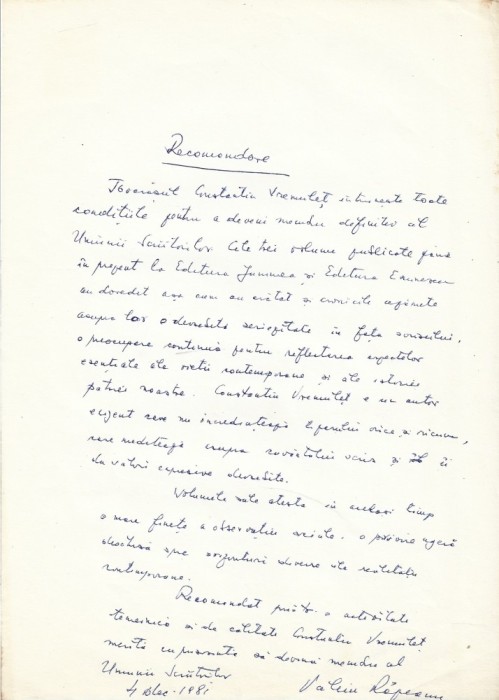 Recomandare
Prozatorul Constantin Vremuleț întrunește toate
condițiile pentru a deveni membru definitiv al
Uniunii Scriitorilor. Cele trei volume publicate până
în prezent la Editura Junimea și Editura Eminescu
au dovedit așa cum au arătat și cronicile
asupra lor o deosebită seriozitate în fața scrisului,
o preocupare continuă pentru reflectarea aspectelor
esențiale ale vieții contemporane și ale istoriei
patriei noastre. Constantin Vremuleț e un autor
exigent care nu încredințează tiparului orice și oricum,
care meditează asupra cuvântului scris și îi
dă valori expresive deosebite.
Volumele sale atestă în același timp
o mare finețe a observației sociale, o privire ageră
deschisă spre orizonturi diverse ale realității
contemporane.
Recomandat printr-o activitate
temeinică și de calitate Constantin Vremuleț
merită cu prisosință să devină membru al
Uniunii Scriitorilor
4 dec. 1981 Valeriu Râpeanu